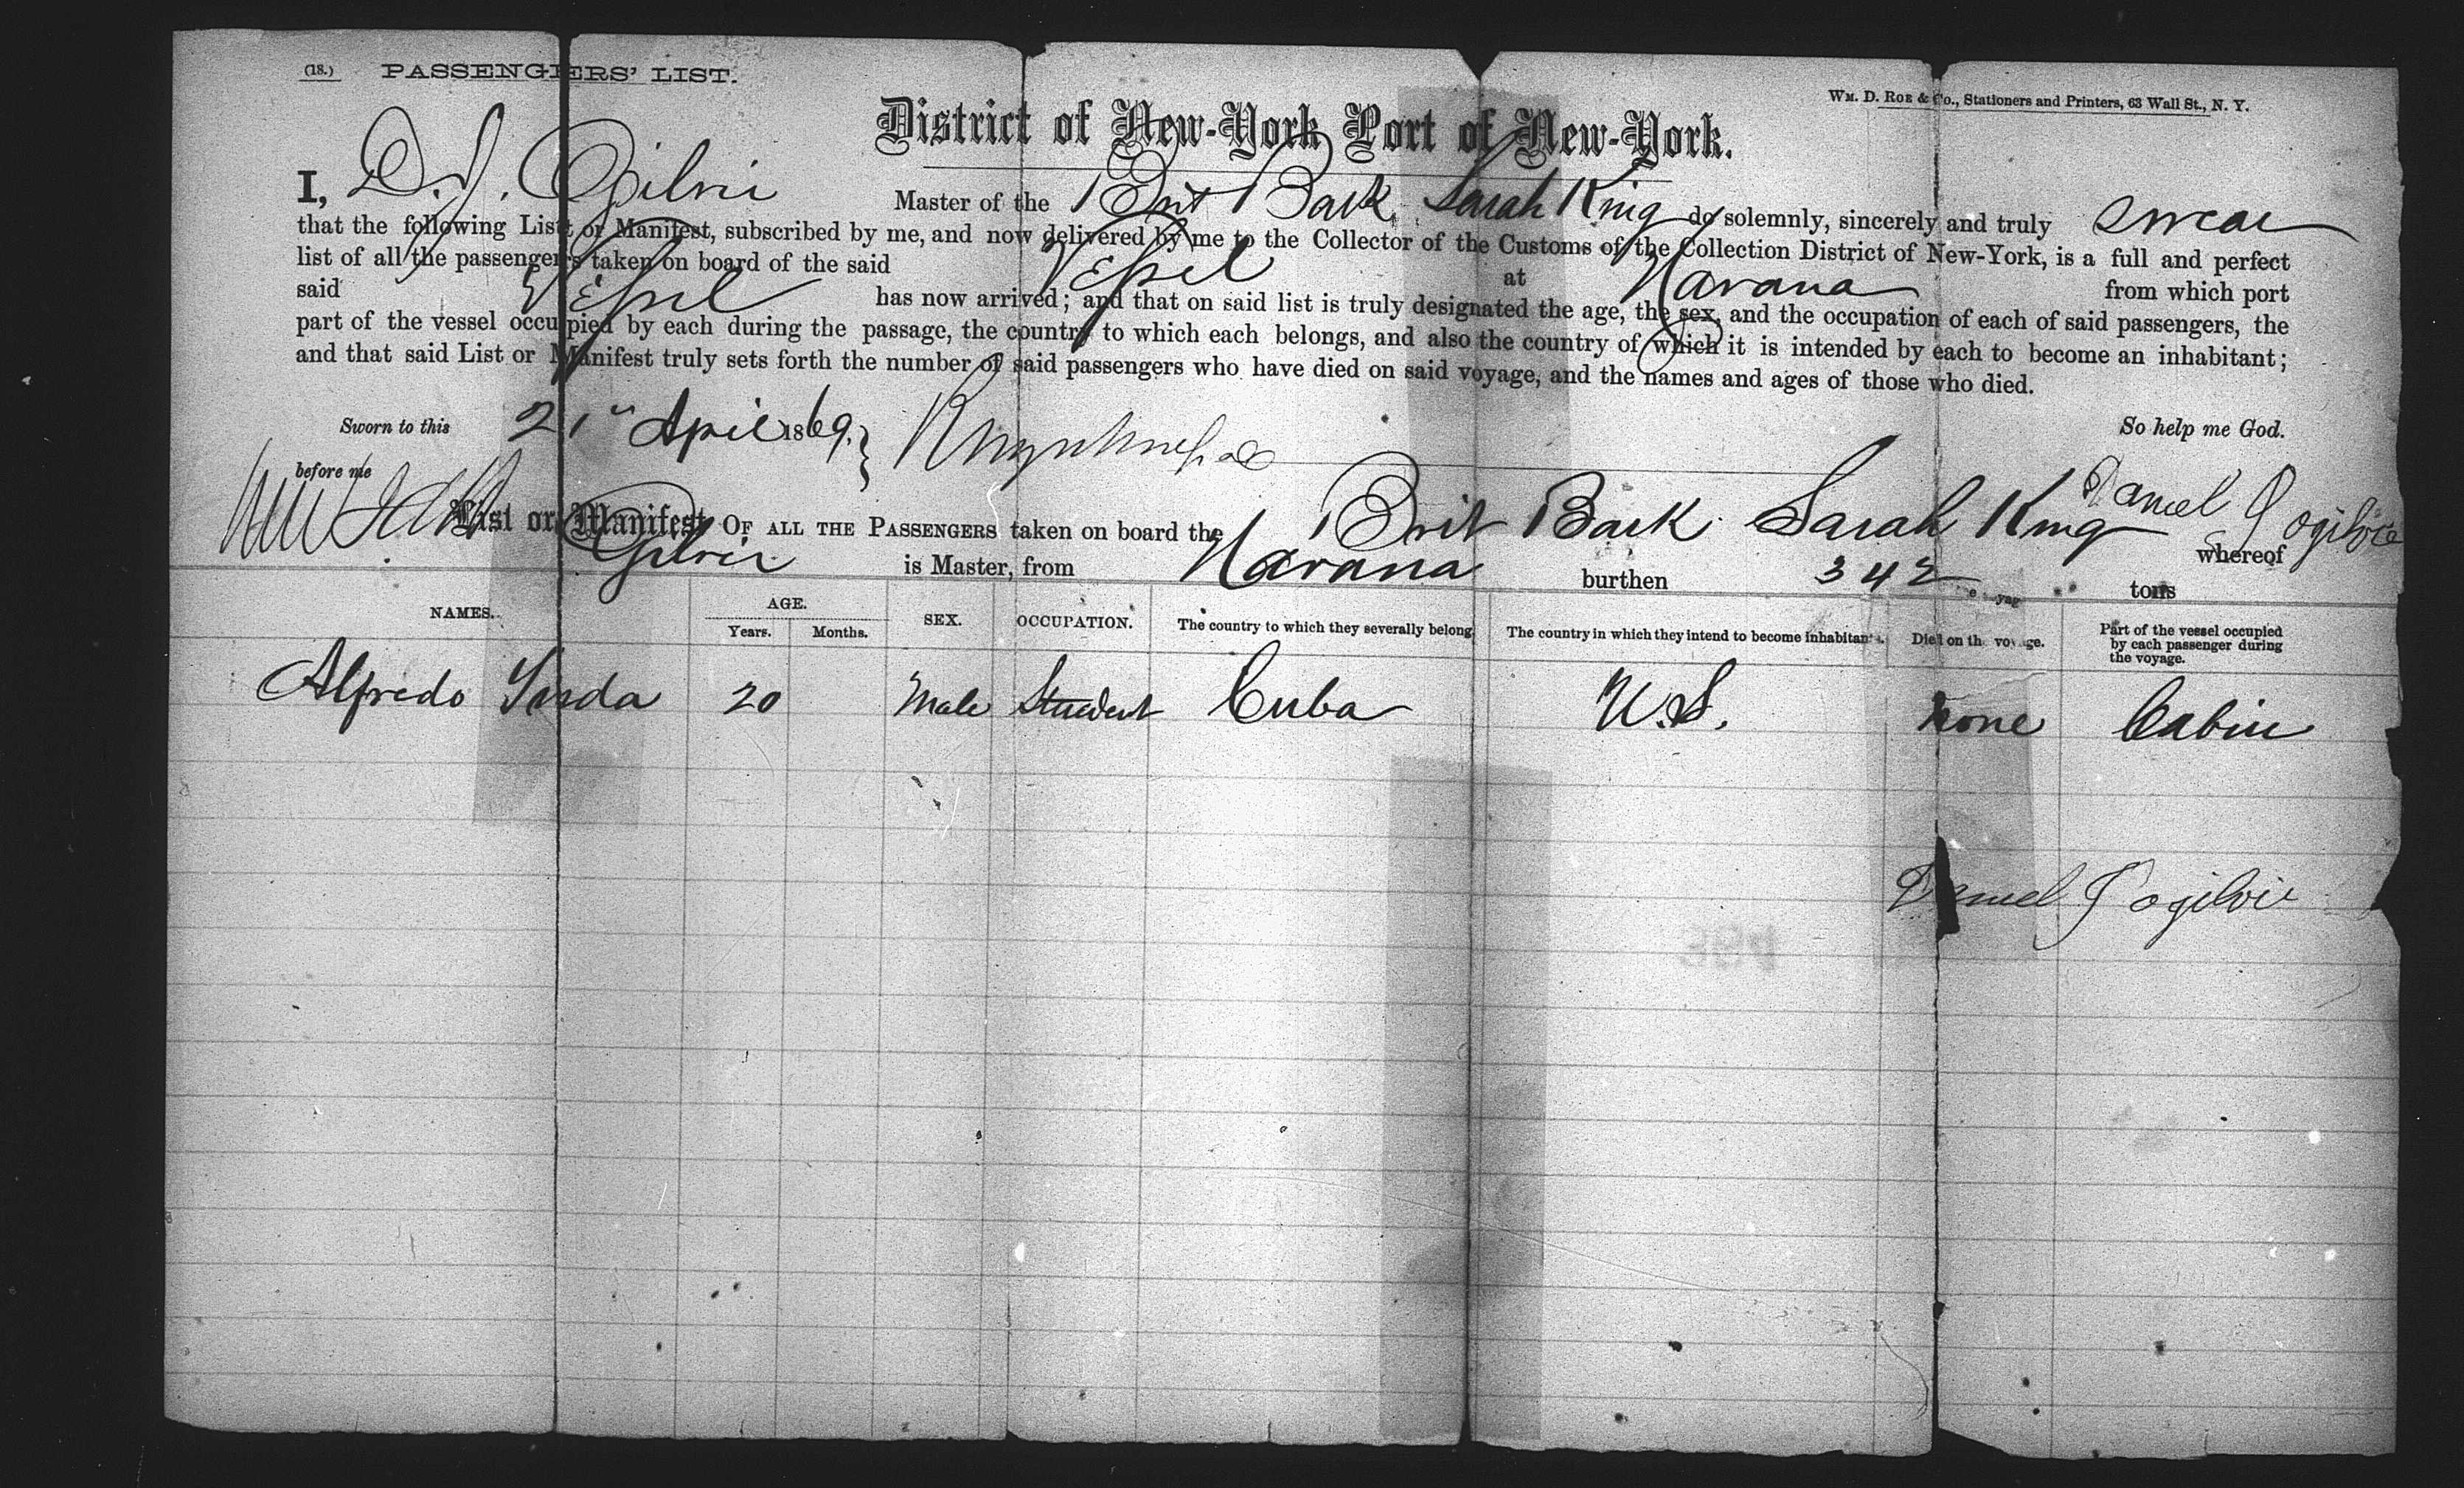 (18.) PASSENGERS' LIST.
WM. D. ROE & Co., Stationers and Printers, 63 Wall St., N. Y.
District of New-York Port of New-York.
I, D. J. Ogilvie Master of the Brit Bark Sarah King do solemnly, sincerely and truly swear
that the following List or Manifest, subscribed by me, and now delivered by me to the Collector of the Customs of the Collection District of New-York, is a full and perfect
list of all the passengers taken on board of the said Vessel at Havana from which port
said Vessel has now arrived; and that on said list is truly designated the age, the sex, and the occupation of each of said passengers, the
part of the vessel occupied by each during the passage, the country to which each belongs, and also the country of which it is intended by each to become an inhabitant;
and that said List or Manifest truly sets forth the number of said passengers who have died on said voyage, and the names and ages of those who died.
Sworn to this 21" April 1869. So help me God.
before me Daniel J Ogilvie
List or Manifest OF ALL THE PASSENGERS taken on board the Brit Bark Sarah King whereof
Ogilvie is Master, from Havana burthen 342 tons
NAMES. AGE. Years. Months. SEX. OCCUPATION. The country to which they severally belong The country in which they intend to become inhabitants. Died on the voyage. Part of the vessel occupied by each passenger during the voyage.
Alfredo 20 Male Student Cuba U.S. None Cabin
Daniel J Ogilvie